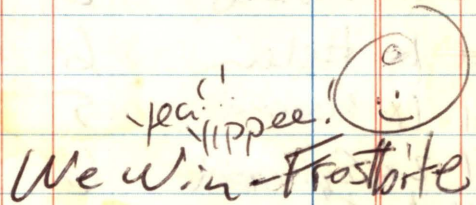 yea!!
Yippee!
We Win-Frostbite